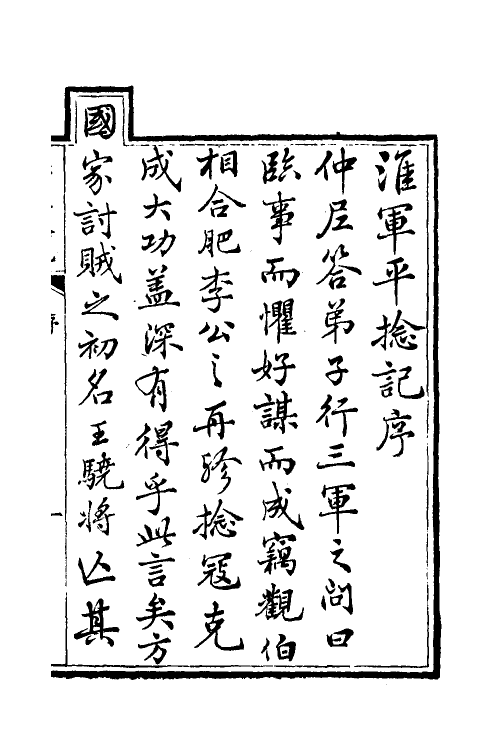 淮軍平捻記序
仲尼答弟子行三軍之問曰
臨事而懼好謀而成竊觀伯
相合肥李公之再殄捻寇克
成大功蓋深有得乎此言矣方
國家討賊之初名王驍將亡其
序
一